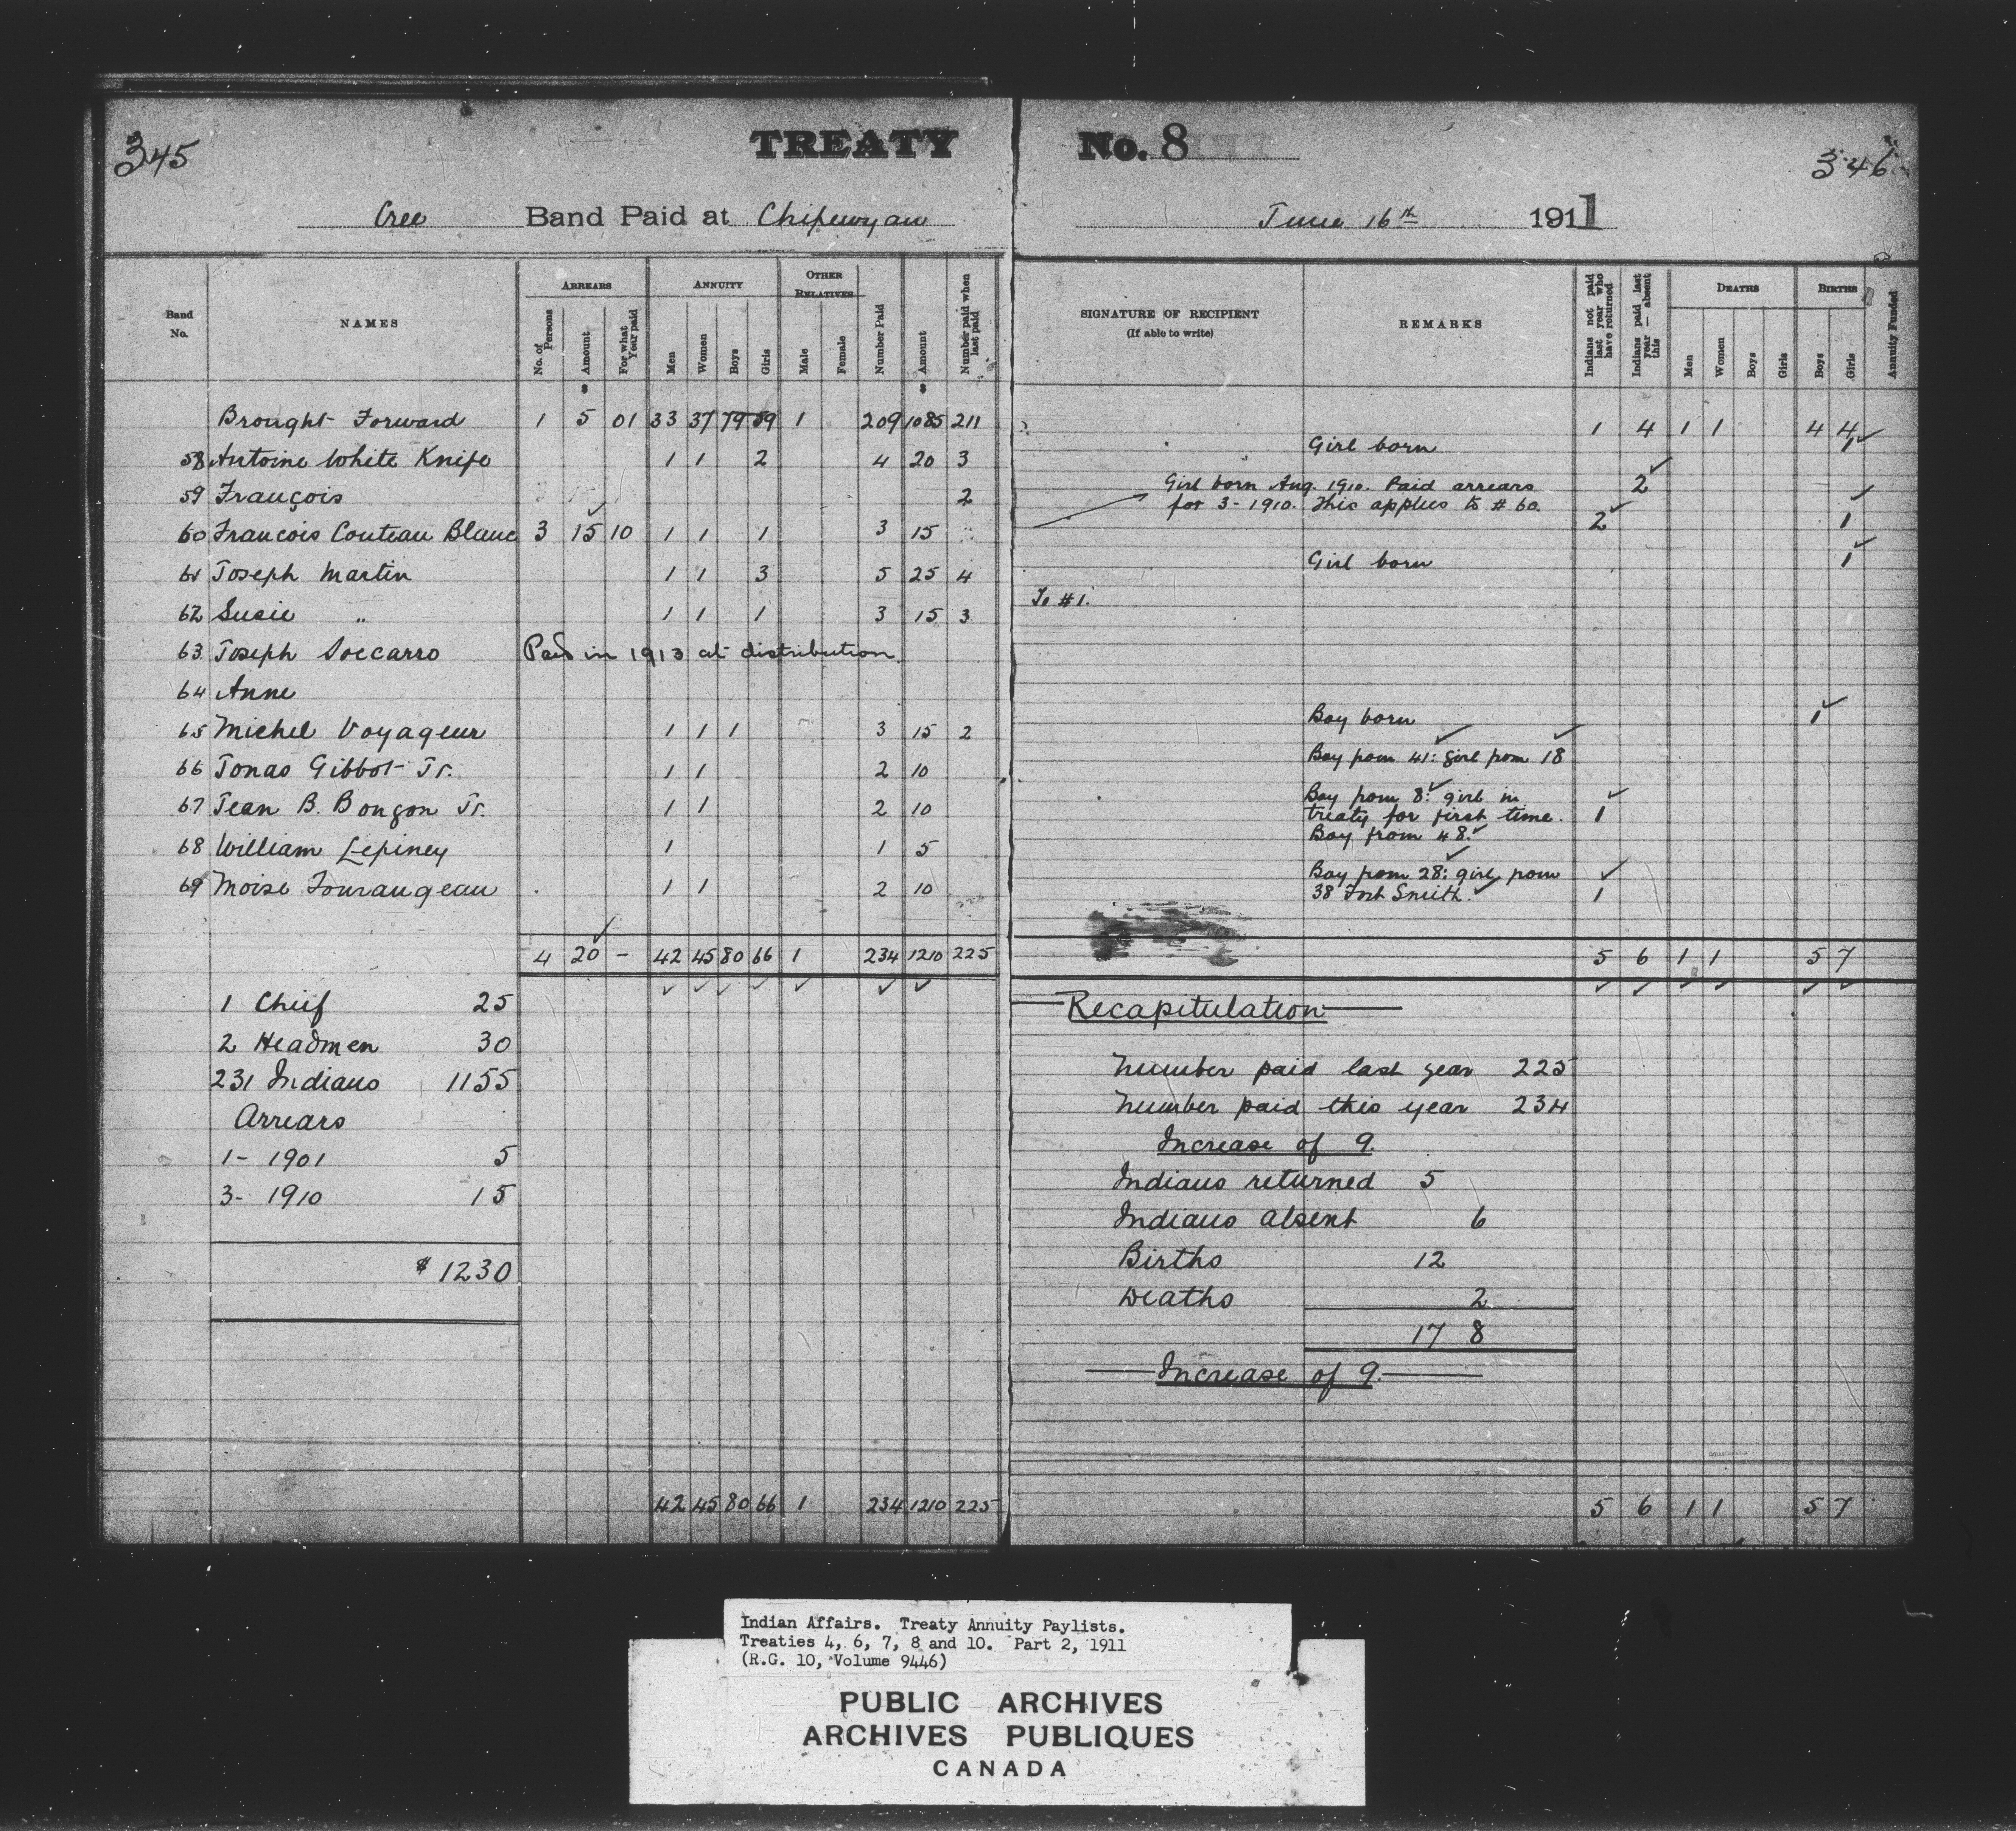 345
TREATY No. 8
346
Cree Band Paid at Chipewyan June 16th 1911
Band No.
NAMES
ARREARS
No. of Persons
Amount
For what Year paid
ANNUITY
Men
Women
Boys
Girls
OTHER RELATIVES
Male
Female
Number Paid
Amount
Number paid when last paid
SIGNATURE OF RECIPIENT
(If able to write)
REMARKS
Indians not paid last year who have returned
Indians paid last year — absent this
DEATHS
Men
Women
Boys
Girls
BIRTHS
Boys
Girls
Annuity Funded
$ $
Brought Forward 1 5 01 33 37 79 59 1 209 1085 211 1 4 1 1 4 4
58 Antoine White Knife 1 1 2 4 20 3 Girl born 1
59 François 2 2
Girl born Aug. 1910. Paid arrears
for 3- 1910. This applies to # 60.
60 Francois Couteau Blanc 3 15 10 1 1 1 3 15 2 1
61 Joseph Martin 1 1 3 5 25 4 Girl born 1
62 Susie " 1 1 1 3 15 3 To #1.
63 Joseph Soccarro Paid in 1913 at distribution.
64 Anne
65 Michel Voyageur 1 1 1 3 15 2 Boy born 1
66 Jonas Gibbot Jr. 1 1 2 10 Boy from 41: girl from 18
67 Jean B. Bougon Jr. 1 1 2 10 Boy from 8: girl in
treaty for first time. 1
68 William Lepiney 1 1 5 Boy from 48.
69 Moise Tourangeau 1 1 2 10 Boy from 28: girl from
38 Fort Smith. 1
4 20 - 42 45 80 66 1 234 1210 225 5 6 1 1 5 7
1 Chief 25
2 Headmen 30
231 Indians 1155
Arrears
1- 1901 5
3- 1910 15
$ 1230
Recapitulation
Number paid last year 225
Number paid this year 234
Increase of 9.
Indians returned 5
Indians absent 6
Births 12
Deaths 2
17 8
Increase of 9.
42 45 80 66 1 234 1210 225 5 6 1 1 5 7
Indian Affairs. Treaty Annuity Paylists.
Treaties 4, 6, 7, 8 and 10. Part 2, 1911
(R.G. 10, Volume 9446)
PUBLIC ARCHIVES
ARCHIVES PUBLIQUES
CANADA